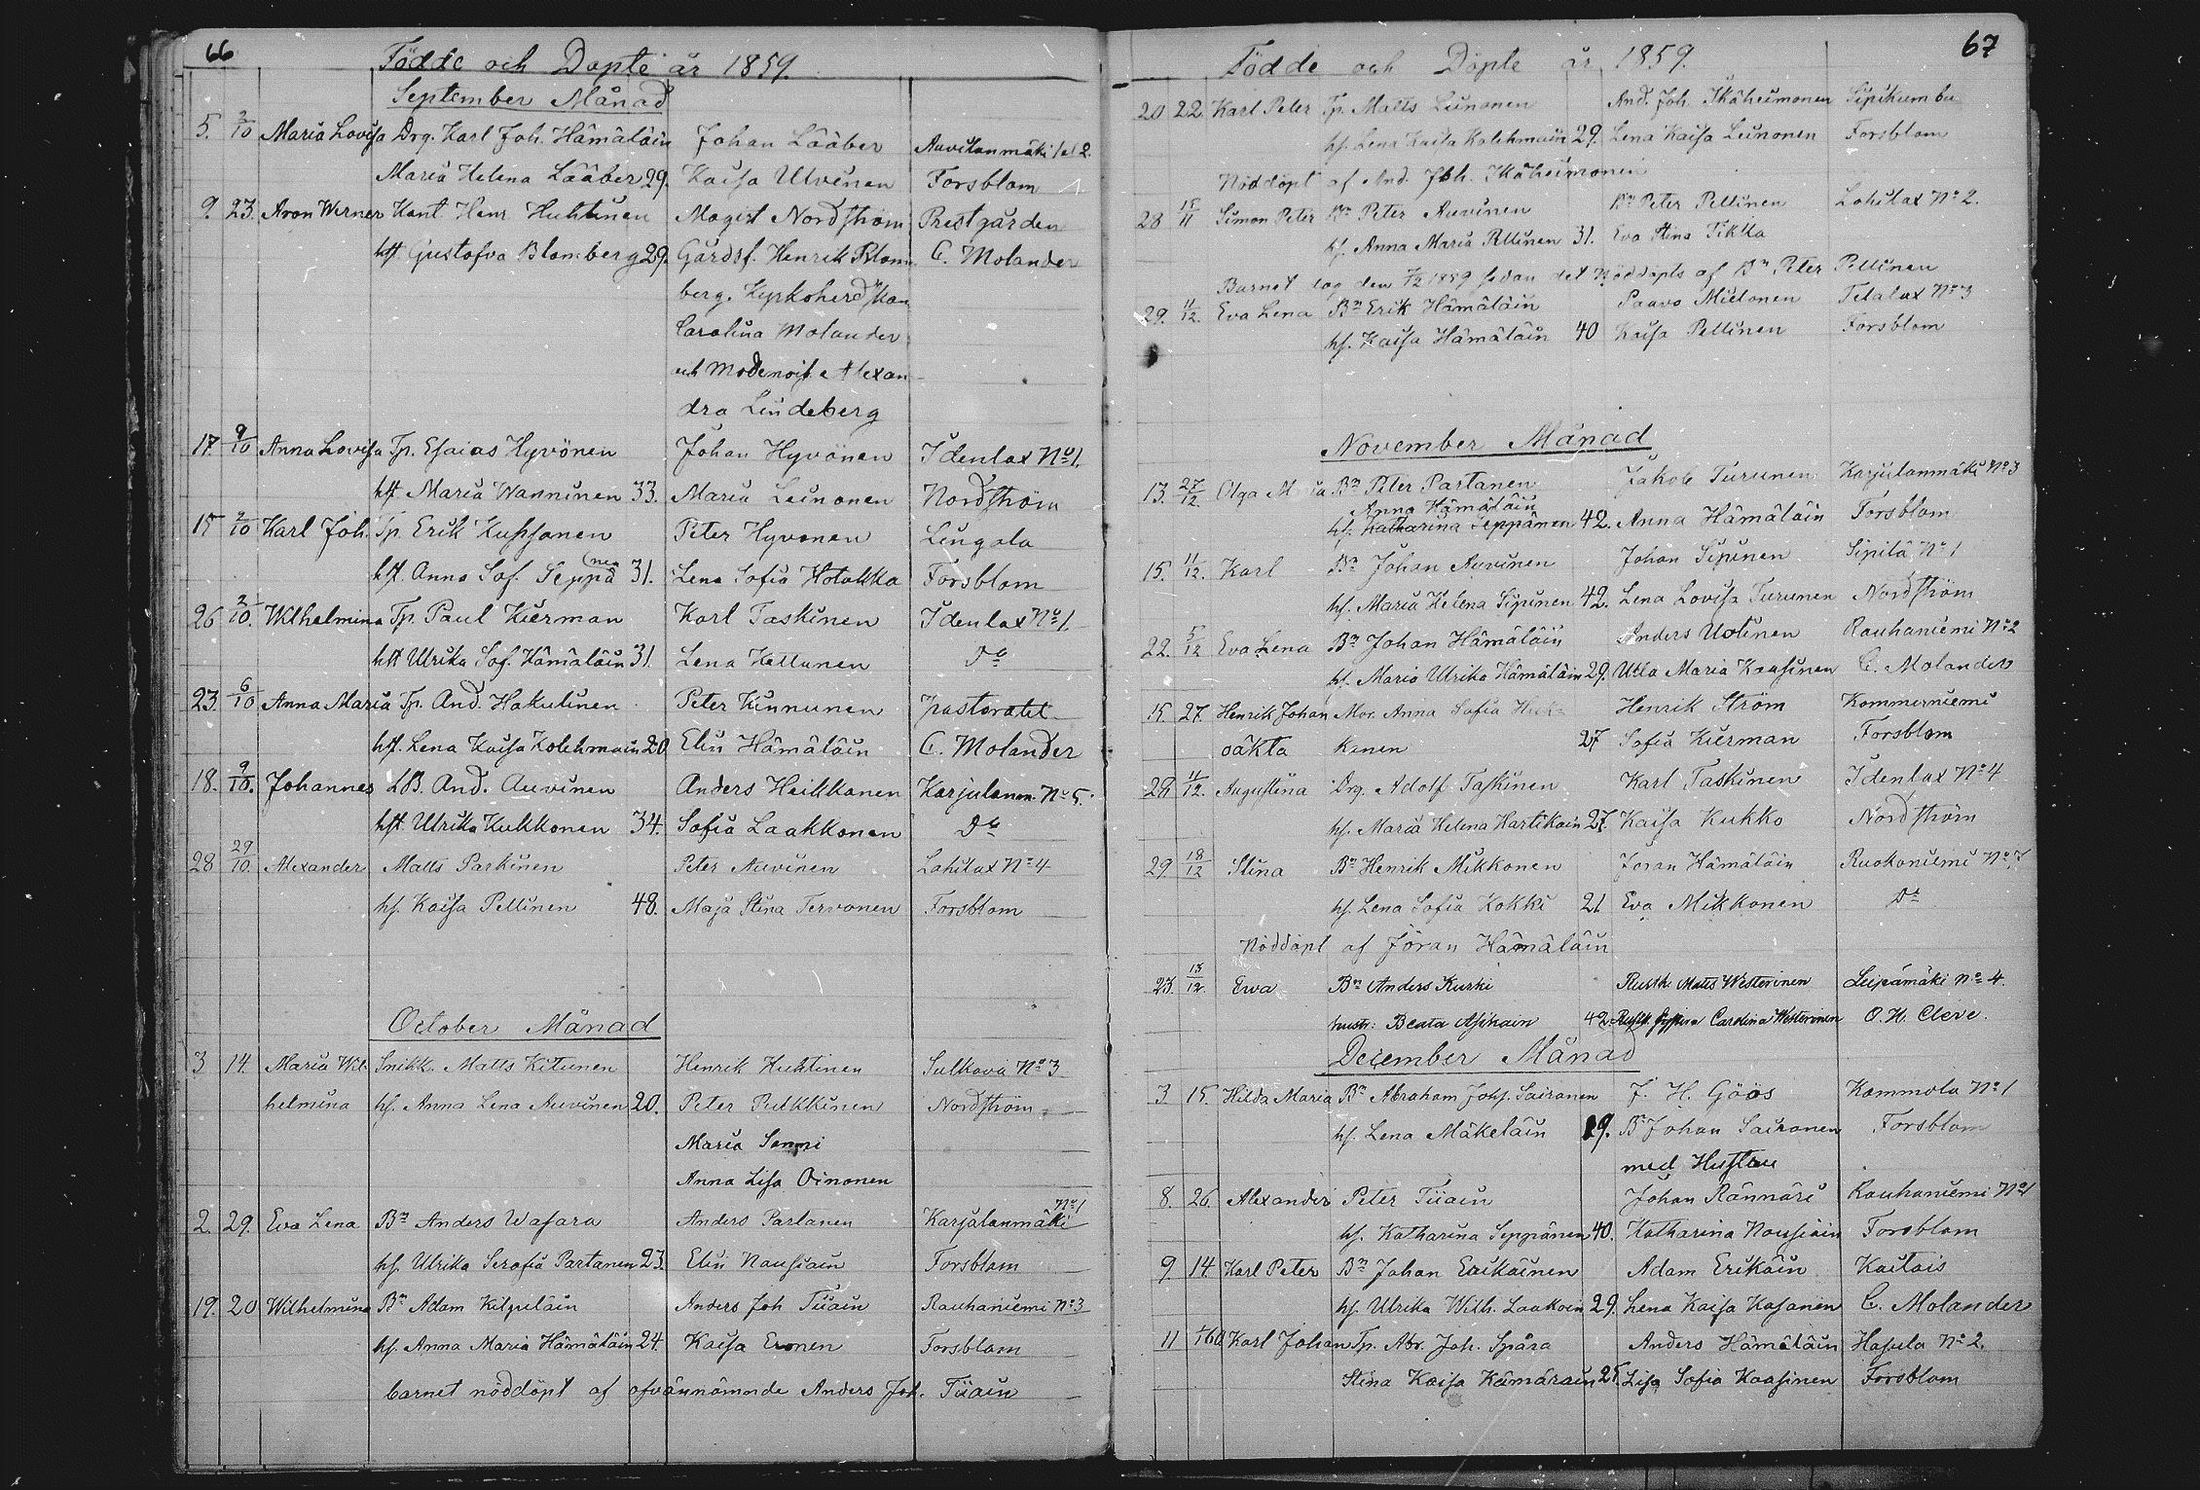 66
Födde och Döpte år 1859.
September Månad
5. 2/10 Maria Lovisa Drg. Karl Joh. Hämäläin Johan Lääber Auvilanmäki 1 et 2.
Maria Helena Lääber 29. Kaisa Ulvinen Forsblom
9. 23. Aron Werner Kant. Henr. Huhtinen Magist Nordström Prestgården
hst Gustafva Blomberg 29. Gårdsf. Henrik Blom C. Molander
berg. Kyrkoherdskan
Carolina Molander
och Modemoiss. Alexan
dra Lindeberg
17. 9/10 Anna Lovisa Tp. Esaias Hyvönen Johan Hyvönen Idenlax No 1.
hst Maria Wanninen 33. Maria Leinonen Nordström
15 2/10 Karl Joh. Tp. Erik Kussonen Peter Hyvonen Lingola
hst. Anna Sof. Seppä(nen 31. Lena Sofia Hotakka Forsblom
26 2/10. Wilhelmina Tp. Paul Kierman Karl Taskinen Idenlax No 1.
hst Ulrika Sof. Hämäläin 31. Lena Kettunen Do
23. 6/10 Anna Maria Tp. And. Hakulinen Peter Kinnunen pastoratet
hst. Lena Kaisa Kolehmain 20. Elin Hämäläin C. Molander
18. 9/10. Johannes LB. And. Auvinen Anders Heikkonen Karjulanm. No 5.
hst. Ulrika Kukkonen 34. Sofia Laakkonen Do
28 29/10. Alexander Matts Parkinen Peter Auvinen Lohilax No 4
hs. Kaisa Pellinen 48. Maja Stina Tervonen Forsblom
October Månad
3 14. Maria Wil- Snikk. Matts Kitunen Henrik Huhtinen Sulkova No 3
helmina hs. Anna Lena Auvinen 20. Peter Pulkkinen Nordström
Maria Sormi
Anna Lisa Oinonen
No 1
2. 29. Eva Lena Bn Anders Wasara Anders Partanen Karjalanmäki
hs. Ulrika Serafia Partanen 23. Elin Nousiain Forsblom
19. 20 Wilhelmina Bn Adam Kilpeläin Anders Joh Tiiain Rauhaniemi No 3
hs. Anna Maria Hämäläin 24. Kaisa Eronen Forsblom
barnet nöddöpt af ofvannämnde Anders Joh. Tiiain
67
Födde och Döpte år 1859.
20 22. Karl Peter Tp. Matts Leinonen And. Joh. Ikäheimonen Sipikumbu
hs. Lena Kaisa Kolehmain 29. Lena Kaisa Leinonen Forsblom
Nöddöpt af And. Joh. Ikäheimonen
28 15/11 Simon Peter Bn Peter Auvinen Bn Peter Pellinen Lohilax No 2.
hs. Anna Maria Pellinen 31. Eva Stina Tikka
Barnet dog den 1/12 1859 sedan det nöddöpts af Bn Peter Pellinen
29. 11/12. Eva Lena Bn Erik Hämäläin Paavo Mielonen Telalax No 3
hs. Kaisa Hämäläin 40 Kaisa Pellinen Forsblom
November Månad
13. 27/12. Olga M ia Bn Peter Partanen Jakob Turunen Karjulanmäki No 3
Anna Hämäläin
hs. Katharina Seppänen 42. Anna Hämäläin Forsblom
15. 11/12. Karl Bn Johan Auvinen Johan Sipinen Sipilä No 1
hs. Maria Helena Sipinen 42. Lena Lovisa Turunen Nordström
22. 5/12 Eva Lena Bn Johan Hämäläin Anders Uotinen Rauhaniemi No 2
hs. Maria Ulrika Hämäläin 29. Ulla Maria Kaasinen C. Molander
15. 27. Henrik Johan Mor. Anna Sofia Huk Henrik Ström Kommerniemi
oäkta kanen 27 Sofia Kierman Forsblom
29. 11/12. Augustina Drg. Adolf Taskinen Karl Taskinen Idenlax No 4
hs. Maria Helena Hartikain 27. Kaisa Kukko Nordström
29. 18/12 Stina Bn Henrik Mikkonen Jöran Hämäläin Ruokoniemi No 7
hs. Lena Sofia Kokki 21 Eva Mikkonen Do
Nöddöpt af Jöran Hämäläin
23. 13/12. Ewa Bn Anders Kurki Rusth Matts Westerinen Leipämäki No 4.
hustr: Beata Asikain 42. Rusth. Carolina Westerinen O. H. Cleve.
December Månad
3. 15. Hilda Maria Bn Abraham Johs. Sairanen J. H. Göös Kammola No 1
hs. Lena Mäkeläin 29. Bn Johan Sairanen Forsblom
med Hustru
8. 26. Alexander Peter Tiiain Johan Rännäri Rauhaniemi No 1
hs. Katharina Seppänen 40. Katharina Nousiain Forsblom
9. 14. Karl Peter Bn Johan Erikäinen Adam Erikäin Kaitais
hs. Ulrika Wilh. Laakoin 29. Lena Kaisa Kasanen C. Molander
11 1/160 Karl Johan Tp. Abr. Joh. Spåra Anders Hämäläin Hapula No 2.
Stina Kaisa Kämäräin 25. Lisa Sofia Kaasinen Forsblom